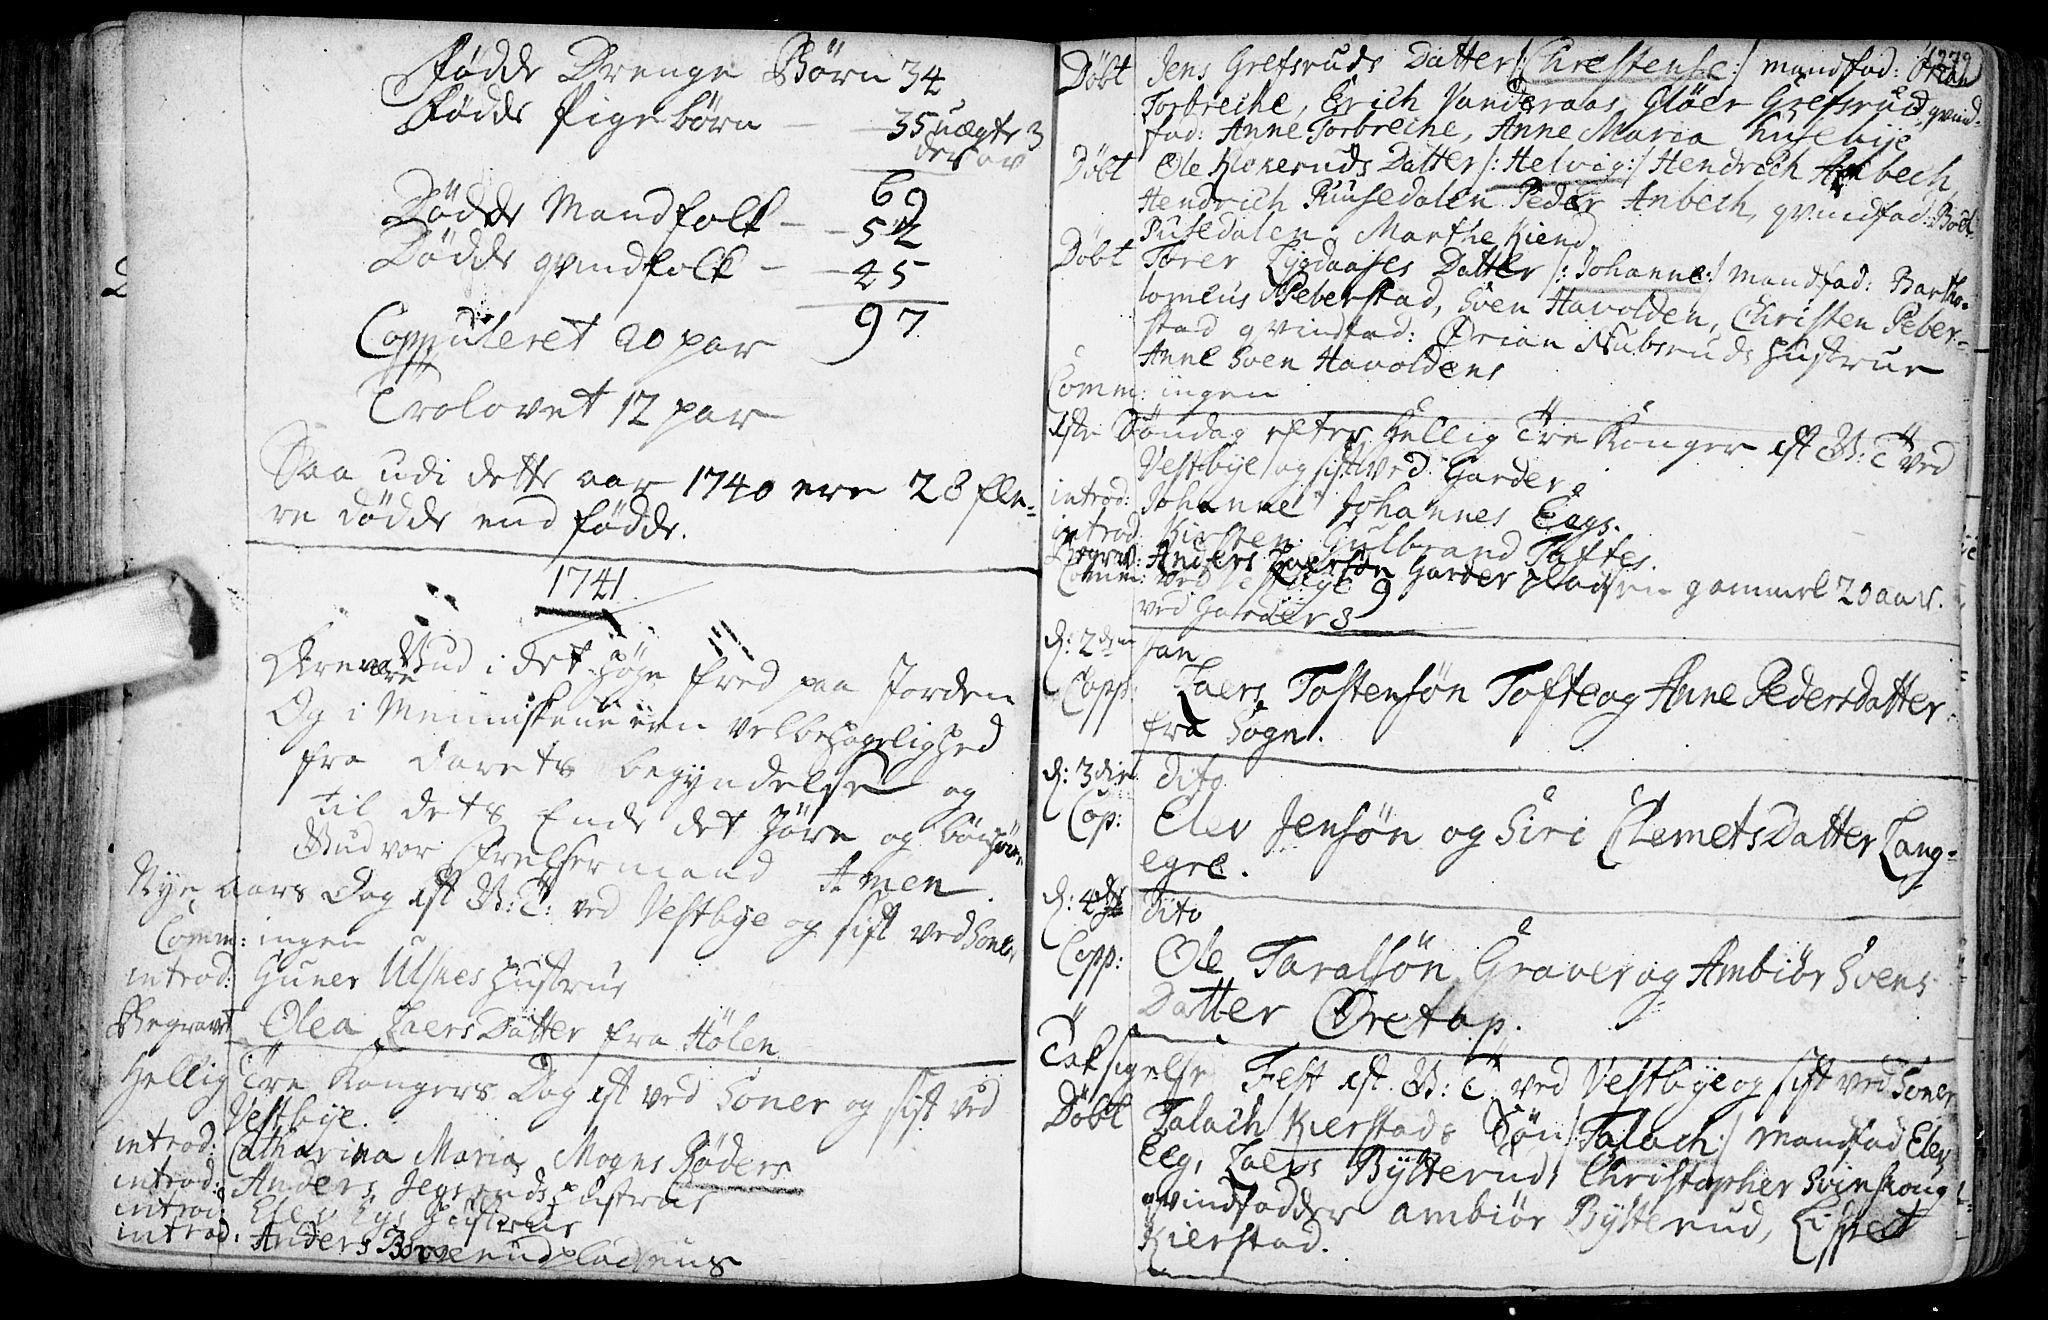 Fødde Drenge Børn 34
Fødde Pigebørn — 35 uægte 3
derav
69
Dødde Mandfolk — 52
Dødde qvindfolk — 45
97
Copuleret 20 par
Trolovet 12 par
Saa udi dette aar 1740 ere 28 fle-
re dødde end fødde.
1741.
Ære være Gud i det høye fred paa Jorden
Og i Menniskene een velbehagelighed
fra Aarets begyndelse og
til dets Ende det høre og bønhøre
Gud vor Frelsermand Amen.
Nye aars Dag est G: T: ved Vestbye og sist ved Soner
Comm: ingen
introd: Guner Ulsnes Hustrue
Begravet Olea LaersDatter fra Hølen
Hellig Tre Kongers Dag est ved Soner og sist ved
Vestbye.
introd: Catharina Maria Mogns Røders
introd: Anders Jegsruds Hustrue
introd: Elev Hustrue
introd: Anders pladsens
279
Døbt Jens Grefsruds Datter /: Chrestense :/ mandfad:
Torbreche, Erich Vanderaas, Gloer Grefsrud, qvind-
fad: Anne Torbreche, Anne Maria Huseby
Døbt Ole Kloneruds Datter /: Helvig :/ Hendrich Anbech,
Hendrich Puusedalen Peder Anbech, qvindfad: Bodl
Pusedalen, Marthe Kiend
Døbt Torer Lysdaases Datter /: Johanne :/ mandfad: Bartho-
lomeus Peberstad, Svend Havolden, Christen Peber-
stad qvindfad: Ørian Nubsruds Hustrue
Anne Soen Havoldens
Comm: ingen
1ste Søndag efter Hellig Tre Konger est G: T ved
Vestbye og sist ved Garder
introd: Johanne Johannes Eegs.
introd Kirsten Gulbrand Toftes.
Begrav: Anders Larsøn Garder pladsen gammel 20 aar.
Comm: ved Vestbye 9
ved Garder 3
d: 2den Jan
Copp: Laers Tostensøn Tofte og Anne Pedersdatter
fra Sogn.
d: 3die dito
Cop: Elev Jensøn og Siri ClemetsDatter Lang-
egre.
d: 4de dito
Copp: Ole Taralsøn Graver og Ambiør Svens
Datter Øretap.
Taksigelse Fest est G: T: ved Vestbye og sist ved Soner
Døbt Talach Kierstads Søn /: Talach :/ mandfad Elev
Eeg, Laers Bÿlterud, Christopher Svinskoug
qvindfadder ambiør Bÿlterud,
Kierstad.